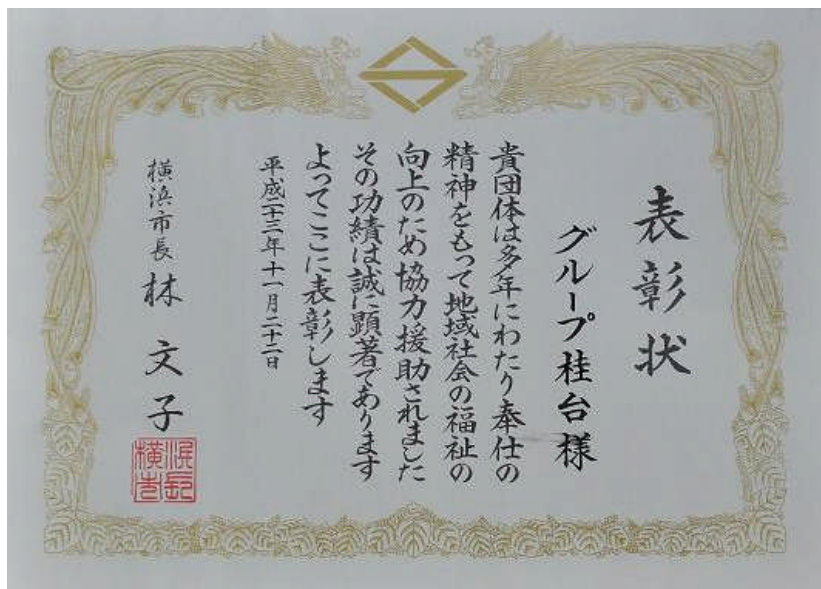 表彰状
グループ桂台様
貴団体は多年にわたり奉仕の
精神をもって地域社会の福祉の
向上のため協力援助されました
その功績は誠に顕著であります
よってここに表彰します
平成二十三年十一月二十二日
横浜市長 林文子